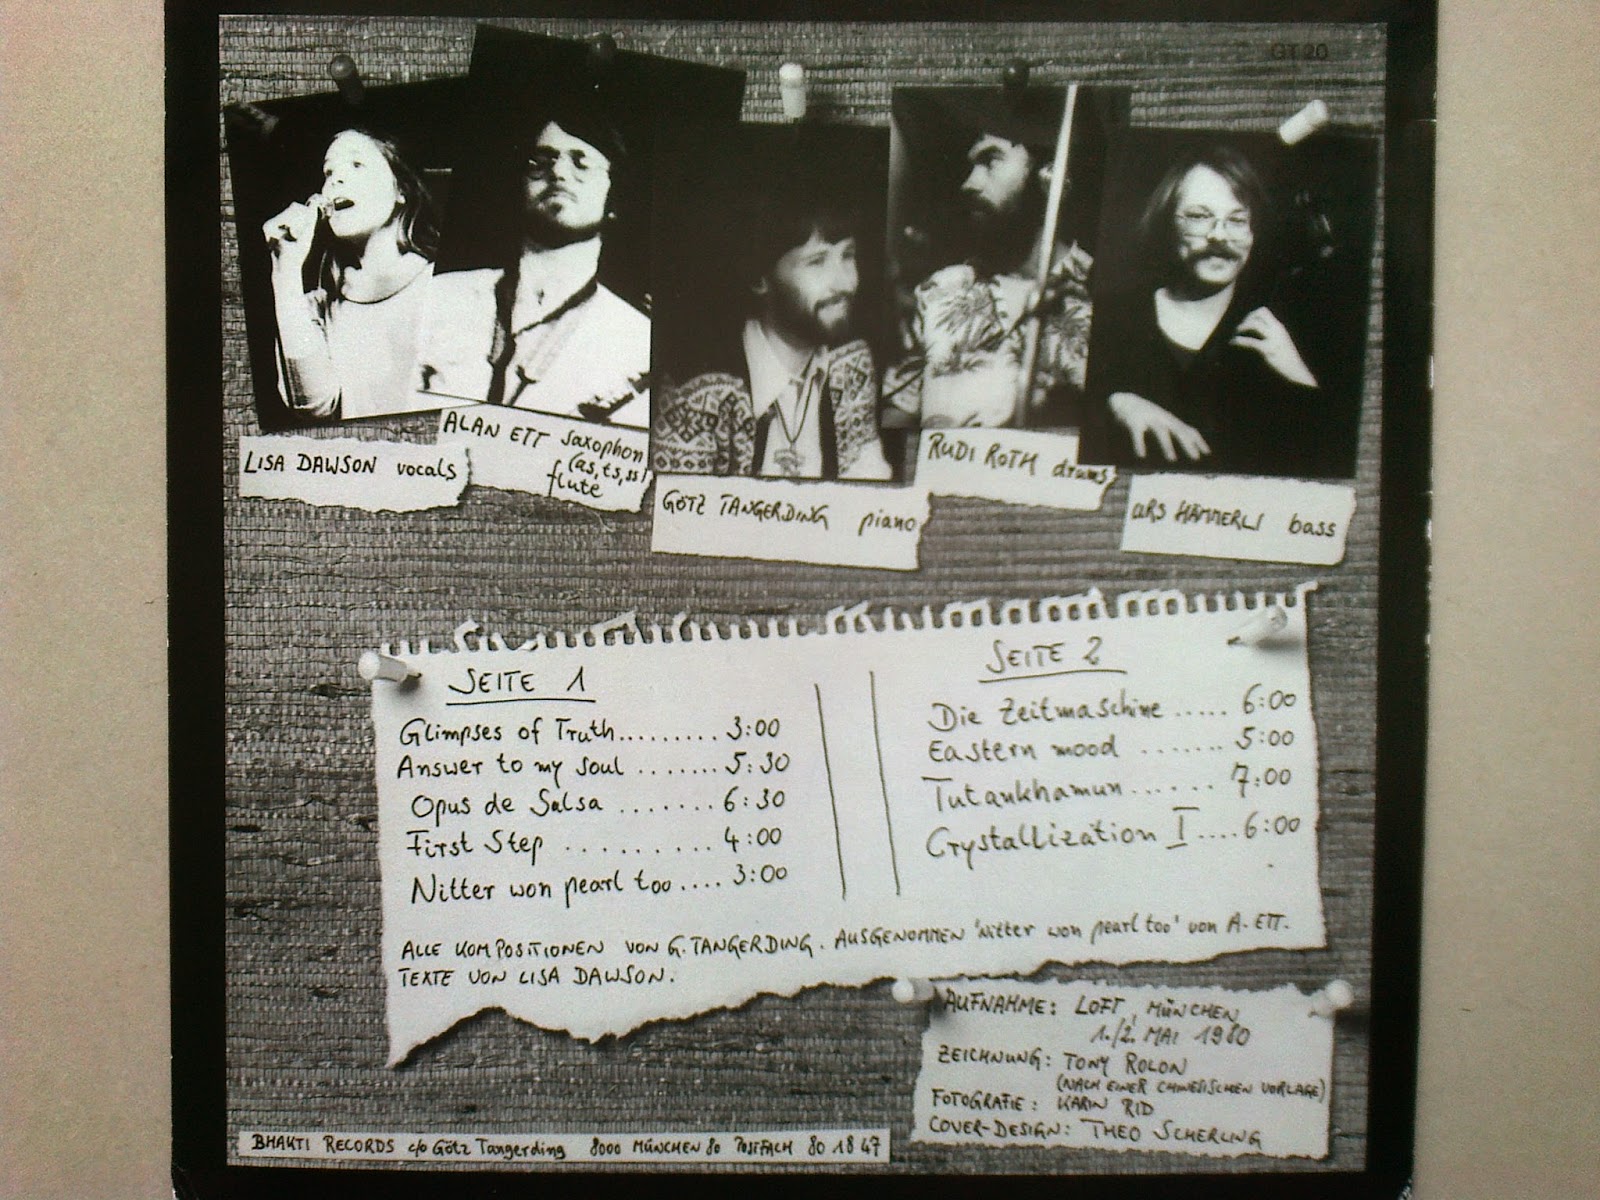 GT 20
LISA DAWSON vocals
ALAN ETT saxophon
(as, ts, ss)
flute
GÖTZ TANGERDING piano
RUDI ROTH drums
URS HÄMMERLI bass
SEITE 1
Glimpses of Truth......... 3:00
Answer to my soul ....... 5:30
Opus de Salsa ....... 6:30
First Step .......... 4:00
Nitter won pearl too.... 3:00
SEITE 2
Die Zeitmaschine ..... 6:00
Eastern mood ....... 5:00
Tutankhamun...... 7:00
Crystallization I.... 6:00
ALLE KOMPOSITIONEN VON G. TANGERDING. AUSGENOMMEN 'Nitter won pearl too' von A. ETT.
TEXTE VON LISA DAWSON.
AUFNAHME: LOFT, MÜNCHEN
1./2. MAI 1980
ZEICHNUNG: TONY ROLON
(NACH EINER CHINESISCHEN VORLAGE)
FOTOGRAFIE: KARIN RID
COVER-DESIGN: THEO SCHERLING
BHAKTI RECORDS c/o Götz Tangerding 8000 MÜNCHEN 80 POSTFACH 80 18 47